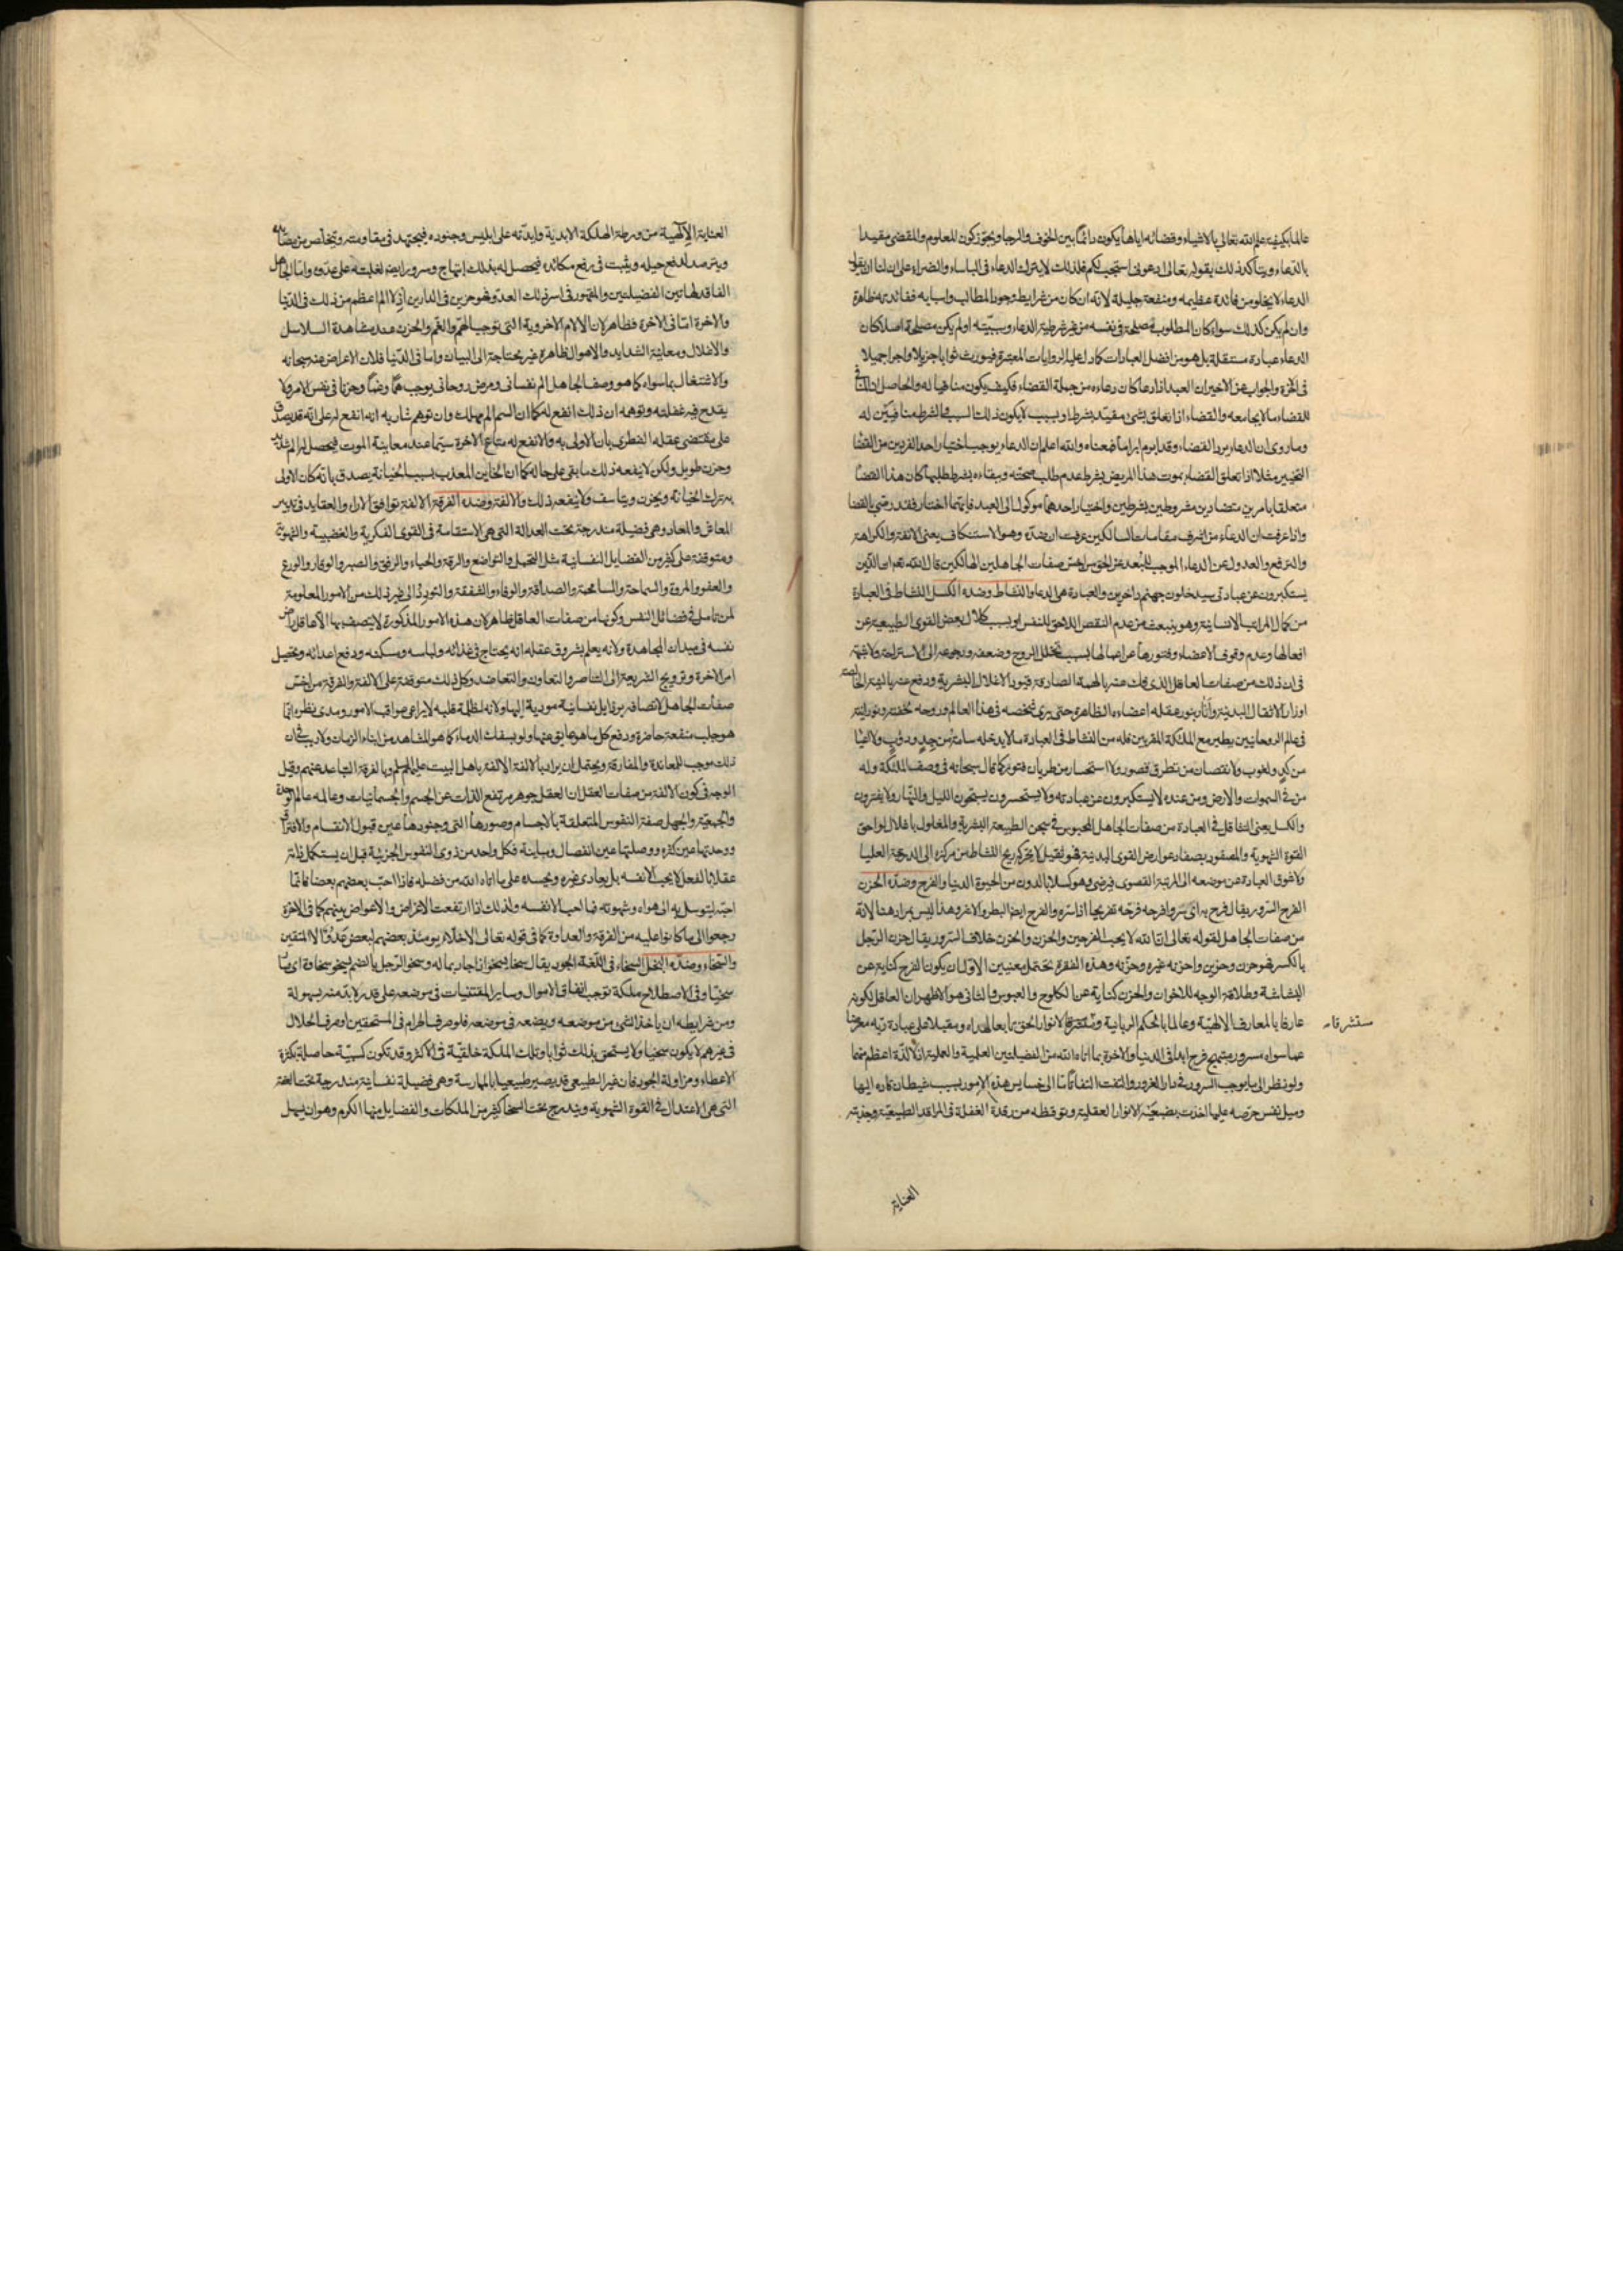 عالما بكيفية علم الله تعالى بالاشياء وقضائه اياها يكون دائما بين الخوف والرجا ويجوز كون المعلوم والمقضى مقيدا
بالدعاء ويتأكد ذلك بقوله تعالى ادعونى استجب لكم فلذلك لا يترك الدعاء فى الباساء والضراء على ان لنا ان نقول
الدعاء لا يخلو من فائدة عظيمه ومنفعة جليلة لانه ان كان من شرايط وجود المطالب واسبابه ففائدته ظاهرة
وان لم يكن كذلك سواء كان المطلوب مصلحة فى نفسه من غير شرطية الدعاء وسببيته او لم يكن مصلحة اصلا كان
الدعاء عبادة مستقلة بل هو من افضل العبادات كما دل عليه الروايات المعتبرة فيورث ثوابا جزيلا واجرا جميلا
فى الاخرة والجواب عن الاخير ان العبد اذا دعا كان دعاءه من جملة القضاء فكيف يكون منافيا له والحاصل ان
للقضاء ما لا يجامعه والقضاء اذا تعلق بشئ مقيد بشرط او بسبب لا يكون ذلك السبب والشرط منافيين له
وما روى ان الدعاء يرد القضاء وقد ابرم ابراما فمعناه والله اعلم ان الدعاء يوجب اختيار احد الفردين من القضا
التخيير مثلا اذا تعلق القضاء بموت هذا المريض بشرط عدم طلب صحته وبقاءه بشرط طلبها كان هذا القضا
متعلقا بامرين متضادين مشروطين بشرطين واختيار احدهما موكول الى العبد فايتهما اختار فقد رضى بالقضا
واذا عرفت ان الدعاء من اشرف مقامات السالكين عرفت ان ضده وهو الاستنكاف يعنى الانفة والكراهة
والترفع والعدول عن الدعاء الموجب للبعد عن الحق من اخس صفات الجاهلين الهالكين قال الله تعالى ان الذين
يستكبرون عن عبادتى سيدخلون جهنم داخرين والعبادة هى الدعاء والنشاط وضده الكسل النشاط فى العبادة
من كمال المراتب الانسانية وهو ينبعث من عدم النقص اللاحق للنفس او بسبب كلال بعض القوى الطبيعية عن
افعالها وعدم وقوف الاعضاء وفتورها عن اعمالها بسبب تحلل الروح وضعفه ورجوعه الى الاستراحة ولا شبهة
فى ان ذلك من صفات العاقل الذى فك عنه بالهمة الصادقة قيود الاغلال البشرية ودفع عنه بالنية الخالصة
اوزار الاثقال البدنية وأثار بنور عقله اعضاءه الظاهرة حتى يرى شخصه فى هذا العالم وروحه لخفته ونورانيته
فى عالم الروحانيين يطير مع الملئكة المقربين فله من النشاط فى العبادة ما لا يدخله سامة من جد ودؤب ولا اعيا
من كد ولغوب ولا نقصان من تطرق قصور ولا استحسار من طريان فتور كما قال سبحانه فى وصف الملئكة وله
من فى السموات والارض ومن عنده لا يستكبرون عن عبادته ولا يستحسرون يسبحون الليل والنهار ولا يفترون
والكسل يعنى التثاقل فى العبادة من صفات الجاهل المحبوس فى سجن الطبيعة البشرية والمغلول باغلال لواحق
القوة الشهوية والمصفود بصفاد عوارض القوى البدنية فهو ثقيل لا يحركه ريح النشاط من مركزه الى الدرجة العليا
ولا شوق العبادة عن موضعه الى المرتبة القصوى فيرضى وهو كسلان بالدون من الحيوة الدنيا والفرح وضده الحزن
الفرح السرور يقال فرح به اى سر وافرحه فرحه تفريحا اذا سره والفرح ايضا البطر والاشر وهذا ليس بمراد هنا لانه
من صفات الجاهل لقوله تعالى ان الله لا يحب الفرحين والحزن والحزن خلاف السرور يقال حزن الرجل
بالكسر فهو حزن وحزين واحزنه غيره وحزنه وهذه الفقرة تحتمل معنيين الاول ان يكون الفرح كناية عن
البشاشة وطلاقة الوجه للاخوان والحزن كناية عن الكلوح والعبوس والثانى هو الاظهر ان العاقل لكونه
عارفا بالمعارف الالهية وعالما بالحكم الربانية ومستشرقا لانوار الحق تابعا لهداه ومقبلا على عبادة ربه معرضا
مستشرقا
عما سواه مسرور مبتهج فرح ابدا فى الدنيا والاخرة بما اتاه الله من الفضيلتين العلمية والعملية اذ لا لذة اعظم منهما
ولو نظر الى ما يوجب السرور فى دار الغرور والتفت التفاتا ما الى خسايس هذه الامور بسبب شيطان قاده اليها
وميل نفس حرصه عليها اخذت بضبعيه الانوار العقلية وتوقظه من رقدة الغفلة فى المراقد الطبيعية وجذبته
العناية
العناية الالهية من ورطة الهلكة الابدية وايدته على ابليس وجنوده فيجتهد فى مقاومته ويتخلص من مصايده
ويترصد لدفع حيله ويثبت فى رفع مكائده فيحصل له بذلك ابتهاج وسرور ايضا لغلبته على عدوه واما الجاهل
الفاقد لهاتين الفضيلتين والمقهور فى اسر ذلك العدو فهو حزين فى الدارين اذ لا الم اعظم من ذلك فى الدنيا
والاخرة اما فى الاخرة فظاهر لان الالام الاخروية التى توجب الهم والغم والحزن عند مشاهدة السلاسل
والاغلال ومعاينة الشدايد والاهوال ظاهرة غير محتاجة الى البيان واما فى الدنيا فلان الاعراض عنه سبحانه
والاشتغال بما سواه كما هو وصف الجاهل الم نفسانى ومرض روحانى يوجب هما وغما وحزنا فى نفس الامر ولا
يقدح فيه غفلته وتوهمه ان ذلك انفع له كما ان السم الم مهلك وان توهم شاربه انه انفع له على انه قد يصدق
على مقتضى عقله الفطرى بان الاولى به والانفع له متاع الاخرة سيما عند معاينة الموت فيحصل له الم شديد
وحزن طويل ولكن لا ينفعه ذلك ما بقى على حاله كما ان الخاين المعذب بسبب الخيانة يصدق بانه كان الاولى
به ترك الخيانة ويحزن ويتاسف ولا ينفعه ذلك والالفة وضده الفرقة الالفة توافق الاراء والعقايد فى تدبير
المعاش والمعاد وهى فضيلة مندرجة تحت العدالة التى هى الاستقامة فى القوى الفكرية والغضبية والشهوية
ومتوقفة على كثير من الفضايل النفسانية مثل التحمل والتواضع والرقة والحياء والرفق والصبر والوقار والورع
والعفو والمروة والسماحة والمسامحة والصداقة والوفاء والشفقة والتودد الى غير ذلك من الامور المعلومة
لمن تامل فى فضائل النفس وكونها من صفات العاقل ظاهر لان هذه الامور المذكورة لا يتصف بها الا عاقل راض
نفسه فى ميدان المجاهدة ولانه يعلم بشروق عقله انه يحتاج فى غذائه ولباسه ومسكنه ودفع اعدائه وتحصيل
امر الاخرة وترويج الشريعة الى التناصر والتعاون والتعاضد وكل ذلك متوقفة على الالفة والفرقة من اخس
صفات الجاهل لاتصافه برذايل نفسانية مودية اليها ولانه لظلمة قلبه لا يراعى عواقب الامور ومدى نظره انما
هو جلب منفعة حاضرة ودفع كل ما هو عايق عنها ولو بسفك الدماء كما هو المشاهد من ابناء الزمان ولا ريب فى ان
ذلك موجب للمعاندة والمفارقة ويحتمل ان يراد بالالفة الالفة باهل البيت عليهم السلم وبالفرقة التباعد عنهم وقيل
الوجه فى كون الالفة من صفات العقل ان العقل جوهر مرتفع الذات عن الجسم والجسمانيات وعالمه عالم الوحدة
والجمعية والجهل صفة النفوس المتعلقة بالاجسام وصورها التى وجودها عين قبول الانقسام والافتراق
ووحدتها عين كثره ووصلتها عين انفصال ومباينة فكل واحد من ذوى النفوس الجزئية قبل ان يستكمل ذاته
عقلا بالفعل لا يحب الا نفسه بل يعادى غيره ويحسده على ما اتاه الله من فضله فاذا احب بعضهم بعضا فانما
احبه ليتوسل به الى هواه وشهوته فما احب الا نفسه ولذلك اذا ارتفعت الاغراض والاعواض بينهم كما فى الاخرة
رجعوا الى ما كانوا عليه من الفرقة والعداوة كما فى قوله تعالى الاخلاء يومئذ بعضهم لبعض عدو الا المتقين
والسخاء وضده البخل السخاء فى اللغة الجود يقال سخا يسخو اذا جاد بماله وسخو الرجل بالضم يسخو سخاوة اى صار
سخيا وفى الاصطلاح ملكة توجب انفاق الاموال وساير المقتنيات فى موضعه على قدر لابد منه بسهولة
ومن شرايطه ان ياخذ الشئ من موضعه ويضعه فى موضعه فلو صرف الحرام فى المستحقين او صرف الحلال
فى غيرهم لا يكون سخيا ولا يستحق بذلك ثوابا وتلك الملكة خلقية فى الاكثر وقد تكون كسبية حاصلة بكثرة
الاعطاء ومزاولة الجود فان غير الطبيعى قد يصير طبيعيا بالممارسة وهى فضيلة نفسانية مندرجة تحت العفة
التى هى الاعتدال فى القوة الشهوية ويندرج تحت السخا كثير من الملكات والفضايل منها الكرم وهو ان يسهل